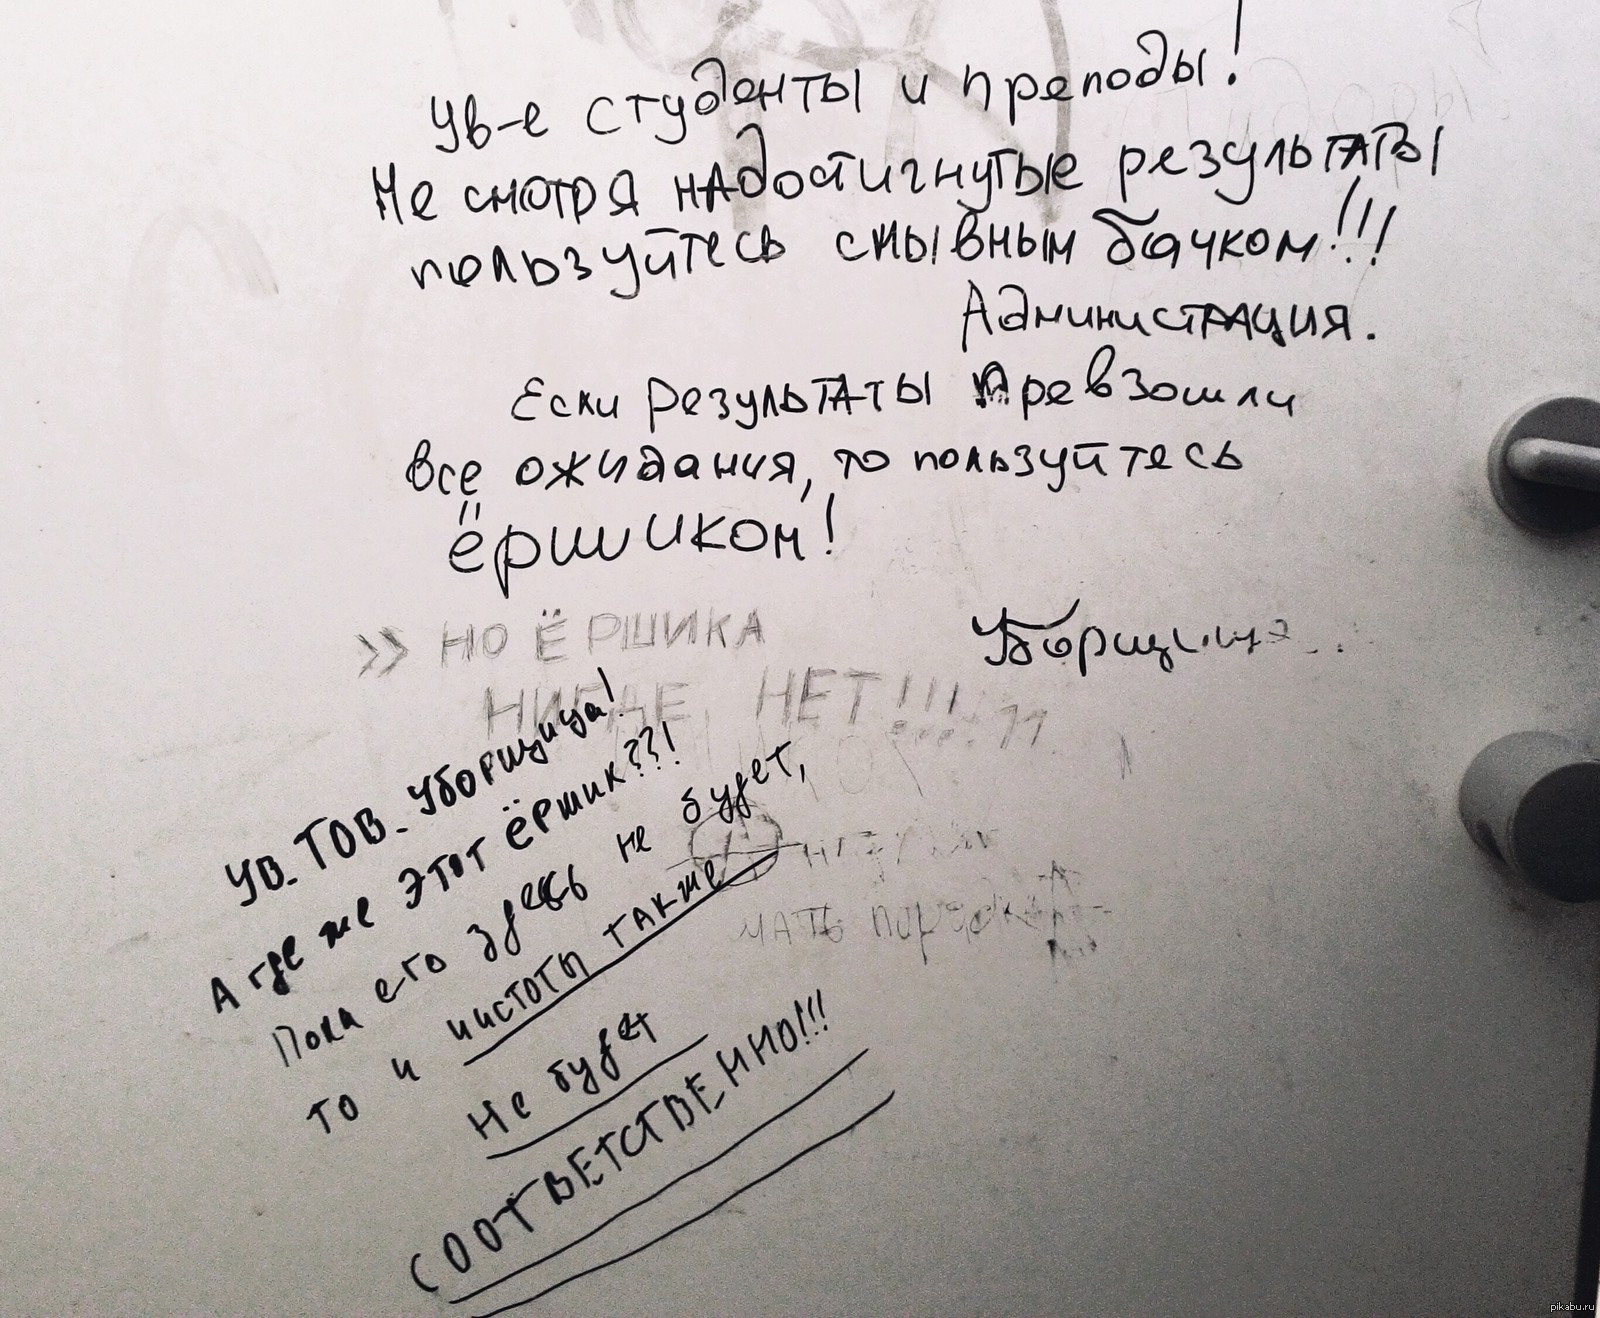 Ув-е студенты и преподы!
Не смотря на достигнутые результаты
пользуйтесь смывным бачком!!!
Администрация.
Если результаты превзошли
все ожидания, то пользуйтесь
ёршиком!
Уборщица...
>> НО ЁРШИКА
НИГДЕ НЕТ!!!
Ув. ТОВ. Уборщица!
А где же этот ёршик???!
Пока его здесь не будет,
то и чистоты также
не будет
СООТВЕТСТВЕННО!!!
мать порядка
pikabu.ru